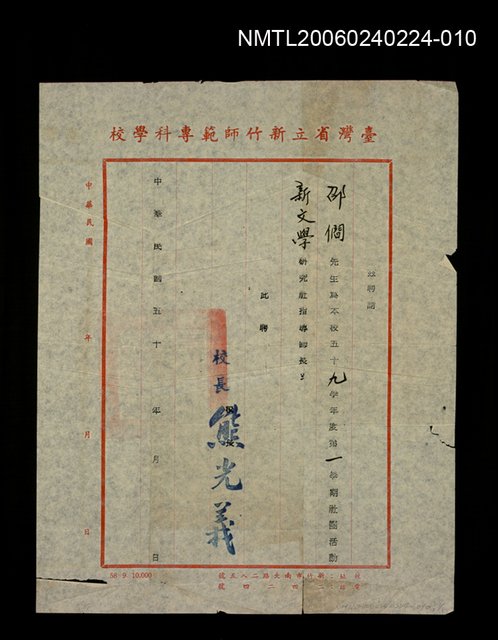 NMTL20060240224-010
臺灣省立新竹師範專科學校
茲聘請
邵僩先生為本校五十九學年度第一學期社團活動
新文學研究社指導師長
此聘
校長 熊光義
中華民國五十 年 月 日
中華民國 年 月 日
校址:新竹市南大路二八五號
58. 9. 10,000